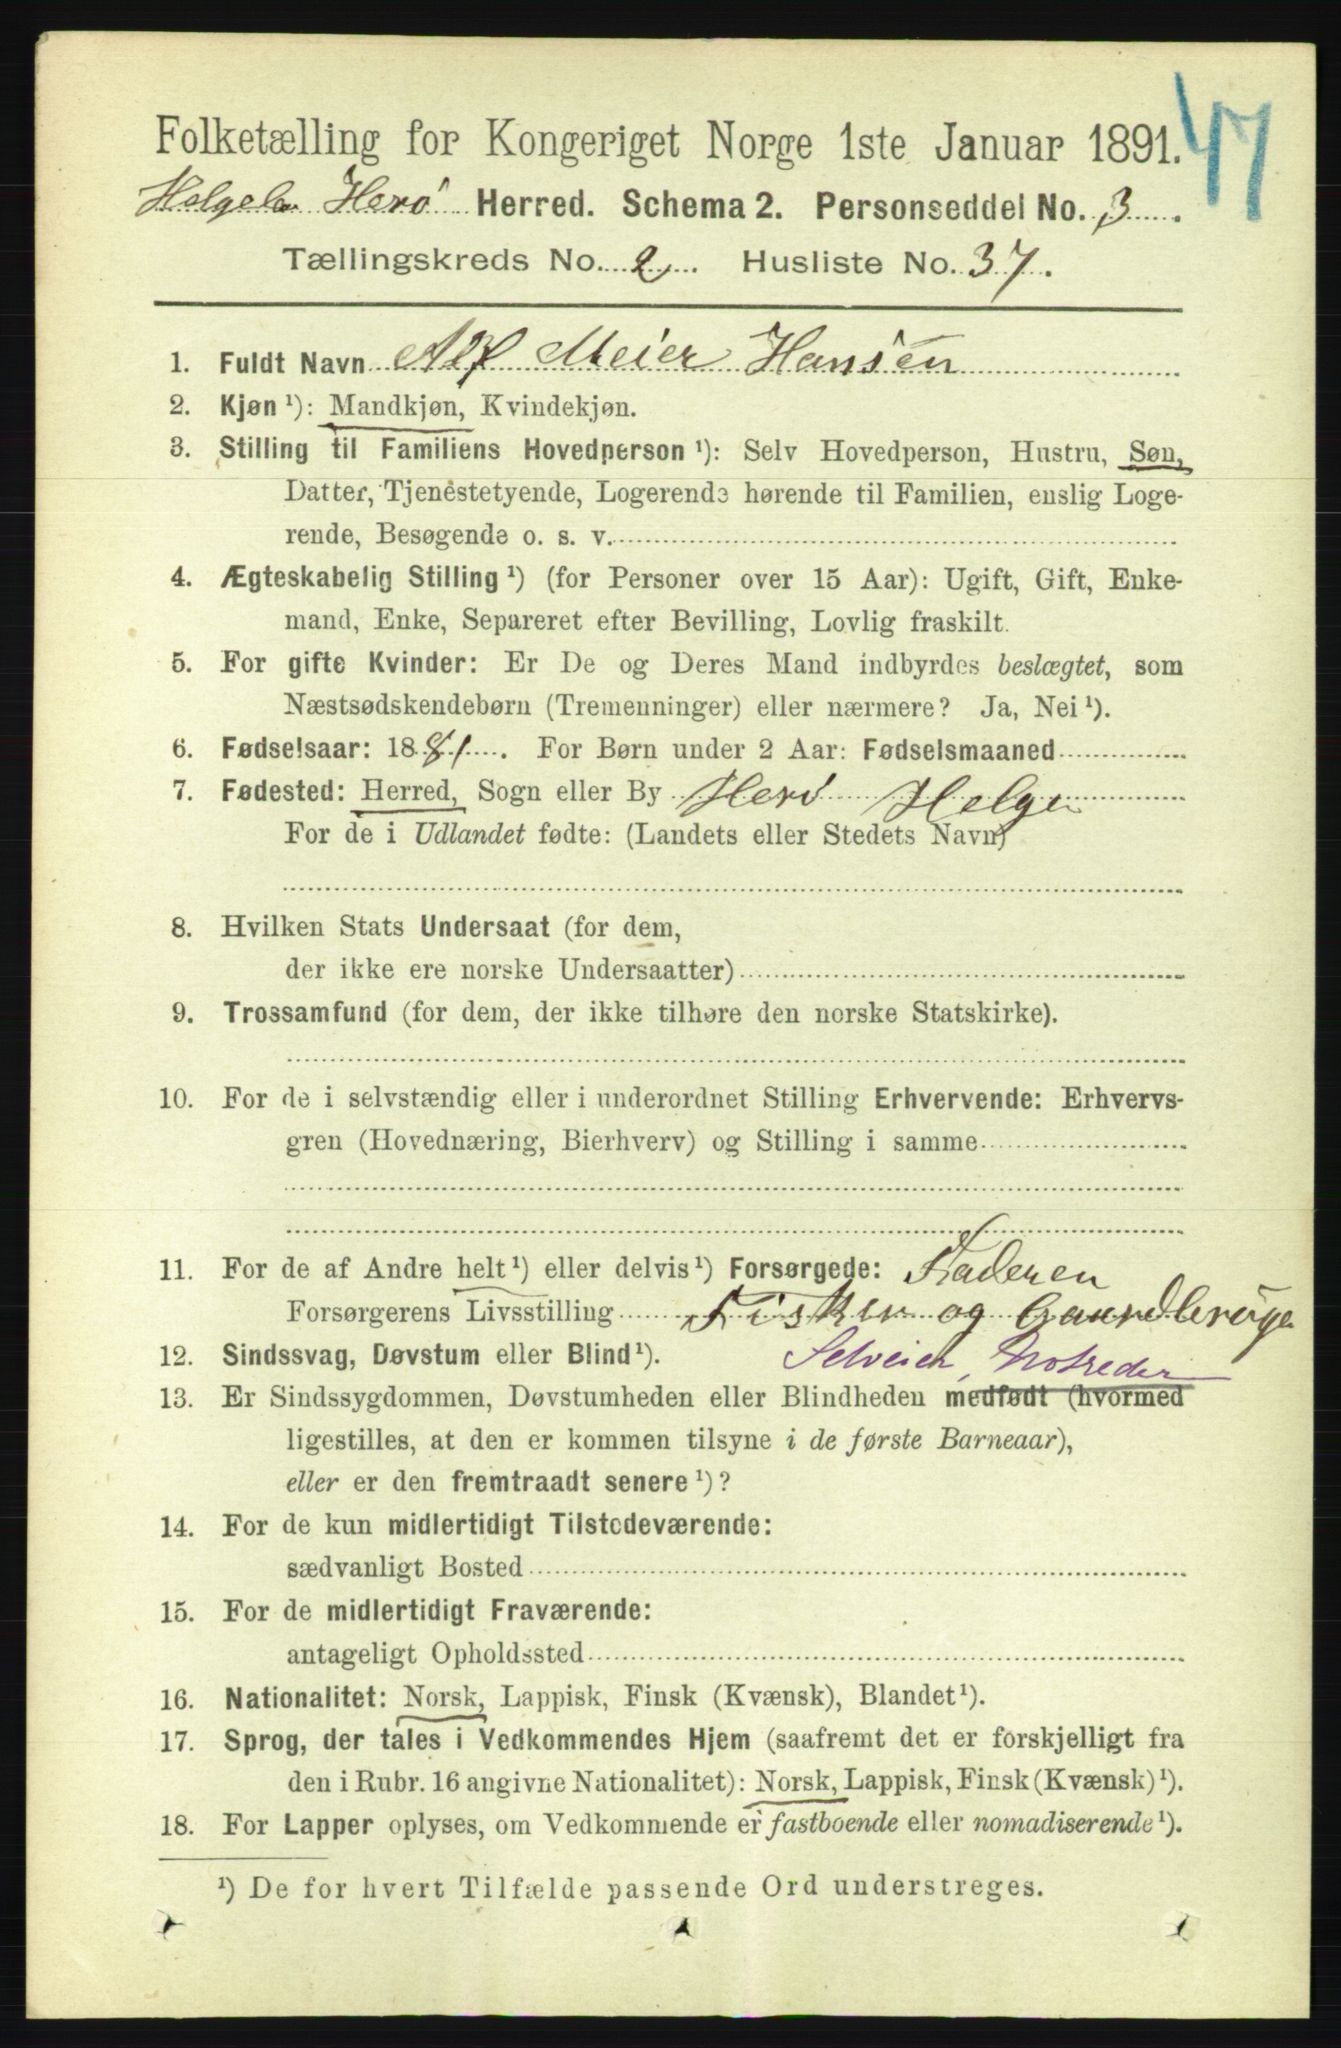 47
Folketælling for Kongeriget Norge 1ste Januar 1891.
Helgel. Herø Herred. Schema 2. Personseddel No. 3.
Tællingskreds No. 2. Husliste No. 37.
1. Fuldt Navn Alf Meier Hansen
2. Kjøn ¹): Mandkjøn, Kvindekjøn.
3. Stilling til Familiens Hovedperson ¹): Selv Hovedperson, Hustru, Søn,
Datter, Tjenestetyende, Logerende hørende til Familien, enslig Loge-
rende, Besøgende o. s. v.
4. Ægteskabelig Stilling ¹) (for Personer over 15 Aar): Ugift, Gift, Enke-
mand, Enke, Separeret efter Bevilling, Lovlig fraskilt.
5. For gifte Kvinder: Er De og Deres Mand indbyrdes beslægtet, som
Næstsødskendebørn (Tremenninger) eller nærmere? Ja, Nei ¹).
6. Fødselsaar: 1881. For Børn under 2 Aar: Fødselsmaaned
7. Fødested: Herred, Sogn eller By Herø Helge
For de i Udlandet fødte: (Landets eller Stedets Navn)
8. Hvilken Stats Undersaat (for dem,
der ikke ere norske Undersaatter)
9. Trossamfund (for dem, der ikke tilhøre den norske Statskirke).
10. For de i selvstændig eller i underordnet Stilling Erhvervende: Erhvervs-
gren (Hovednæring, Bierhverv) og Stilling i samme
11. For de af Andre helt ¹) eller delvis ¹) Forsørgede: Faderen
Forsørgerens Livsstilling Fisker og Gaardbruger
12. Sindssvag, Døvstum eller Blind ¹). Selveier, Notreder
13. Er Sindssygdommen, Døvstumheden eller Blindheden medfødt (hvormed
ligestilles, at den er kommen tilsyne i de første Barneaar),
eller er den fremtraadt senere ¹)?
14. For de kun midlertidigt Tilstedeværende:
sædvanligt Bosted
15. For de midlertidigt Fraværende:
antageligt Opholdssted
16. Nationalitet: Norsk, Lappisk, Finsk (Kvænsk), Blandet ¹).
17. Sprog, der tales i Vedkommendes Hjem (saafremt det er forskjelligt fra
den i Rubr. 16 angivne Nationalitet): Norsk, Lappisk, Finsk (Kvænsk) ¹).
18. For Lapper oplyses, om Vedkommende er fastboende eller nomadiserende ¹).
¹) De for hvert Tilfælde passende Ord understreges.